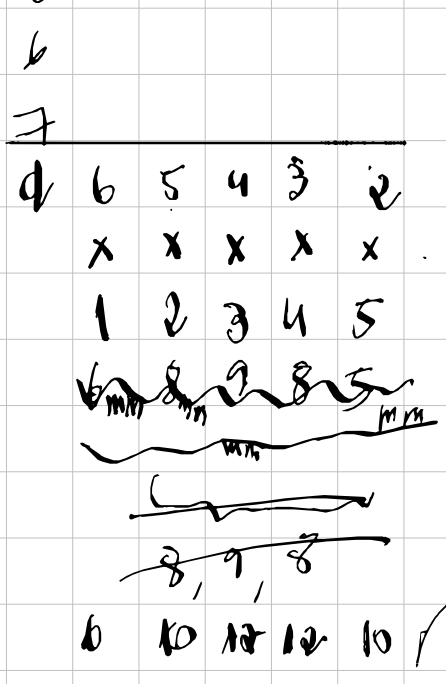 6
7
d 6 5 4 3 2
x x x x x
1 2 3 4 5
6 8 9 8 5
8, 9, 8
6 10 12 12 10